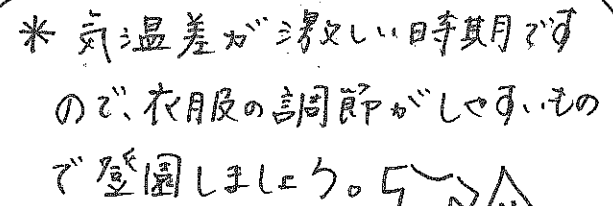 * 気温差が激しい時期です
ので、衣服の調節がしやすいもの
で登園しましょう。